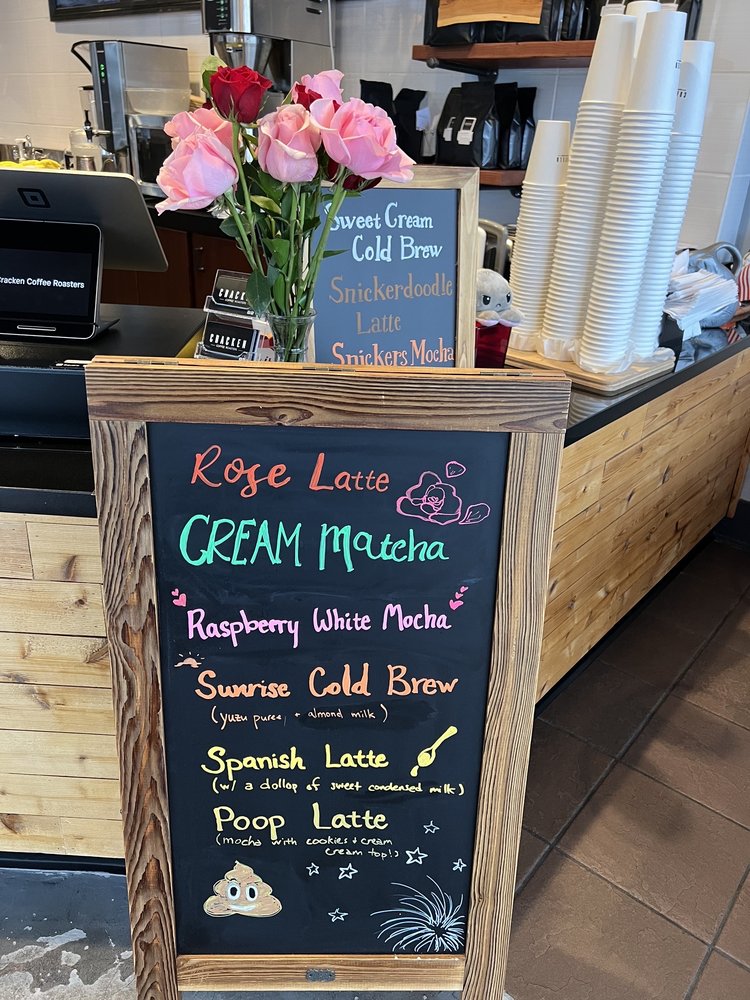 Cracken Coffee Roasters
CRACKEN
COFFEE ROASTERS
CRACKEN
COFFEE ROASTERS
Sweet Cream
Cold Brew
Snickerdoodle
Latte
Snickers Mocha
Rose Latte
CREAM Matcha
Raspberry White Mocha
Sunrise Cold Brew
(yuzu puree + almond milk)
Spanish Latte
(w/ a dollop of sweet condensed milk)
Poop Latte
(mocha with cookies + cream
cream top!)